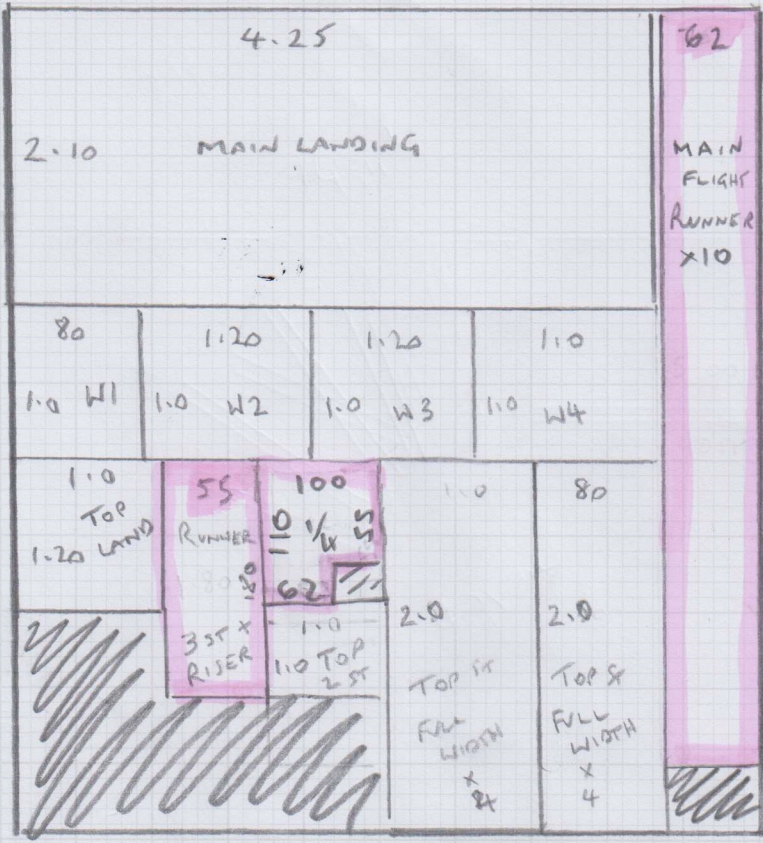 4.25
2.10 MAIN LANDING
62
MAIN
FLIGHT
RUNNER
X10
80
1.0 W1
1.20
1.0 W2
1.20
1.0 W3
1.0
1.0 W4
1.0
TOP
LAND
1.20
55
RUNNER
3 ST X
RISER
100
1/4
55
62
1.0
1.0 TOP
2 ST
1.0
2.0
TOP ST
FULL
WIDTH
X
4
80
2.0
TOP St
FULL
WIDTH
X
4